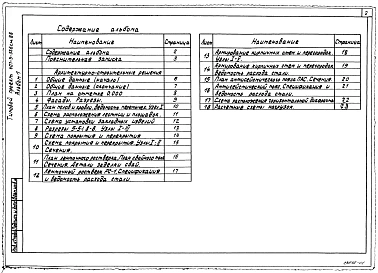 2
Содержание альбома
Лист Наименование Страница
Содержание альбома 2
Пояснительная записка 3
Архитектурно-строительные решения
1 Общие данные (начало) 6
2 Общие данные (окончание) 7
3 План на отметке 0.000 8
4 Фасады. Разрезы. 9
5 План полов и кровли, ведомость перемычек. Узел I
6 Схема расположения лестниц и площадок. 11
7 Схема установки закладных изделий 12
8 13
9 Схема покрытия и перекрытия 14
10 Схема покрытия и перекрытия. Узлы I-8 15
Сечения.
11 План ленточного ростверка. План свайного поля 16
Сечения. Детали заделки свай.
12 Ленточный ростверк РС-1. Спецификация 17
и ведомость расхода стали.
Лист Наименование Страница
13 Армирование кирпичных стен и перегородок. 18
Узлы I-5.
14 Армирование кирпичных стен и перегородок. 19
Ведомость расхода стали.
15 План антисейсмического пояса ПАС. Сечения. 20
16 Антисейсмический пояс. Спецификация и 21
ведомость расхода стали.
17 Схема расположения горизонтальной диафрагмы 22
18 23
Типовой проект
Альбом 1